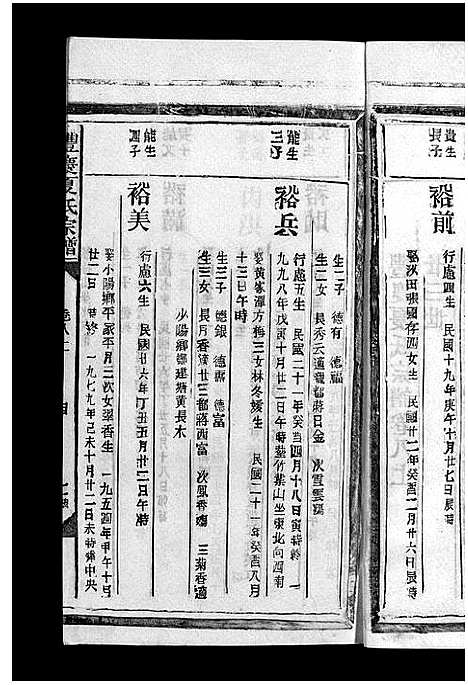 貴生
長子
裕前
行處四生 民國二十九年庚辰十月廿七日辰時
娶汝田張國存四女生 民國廿二年癸酉二月廿六日辰時
能生
三子
裕兵
生二子 德有 德福
生二女 長秀云適 蔣日金 次雪雲
行處五生 民國二十一年癸 四月十八日寅時終 一
九九八年戊寅十月廿二日午時葬竹葉山坐東北向西南
娶黃家潭方梅三女林冬媛生 民國二十一年癸酉八月
十三日午時
生三子 德銀 德 德富
生三女 長月香適廿三都蔣西富 次鳳香 三菊香適
少陽鄉 建塘黃長木
能生
四子
裕美
行處六生 民國廿六年丁丑五月廿三日午時
娶小陽鄉平家平月三次女翠香生 一九五四年甲午十月
廿二日 時終 一九七九年己未十月廿二日未時葬中央
豐慶夏氏宗譜